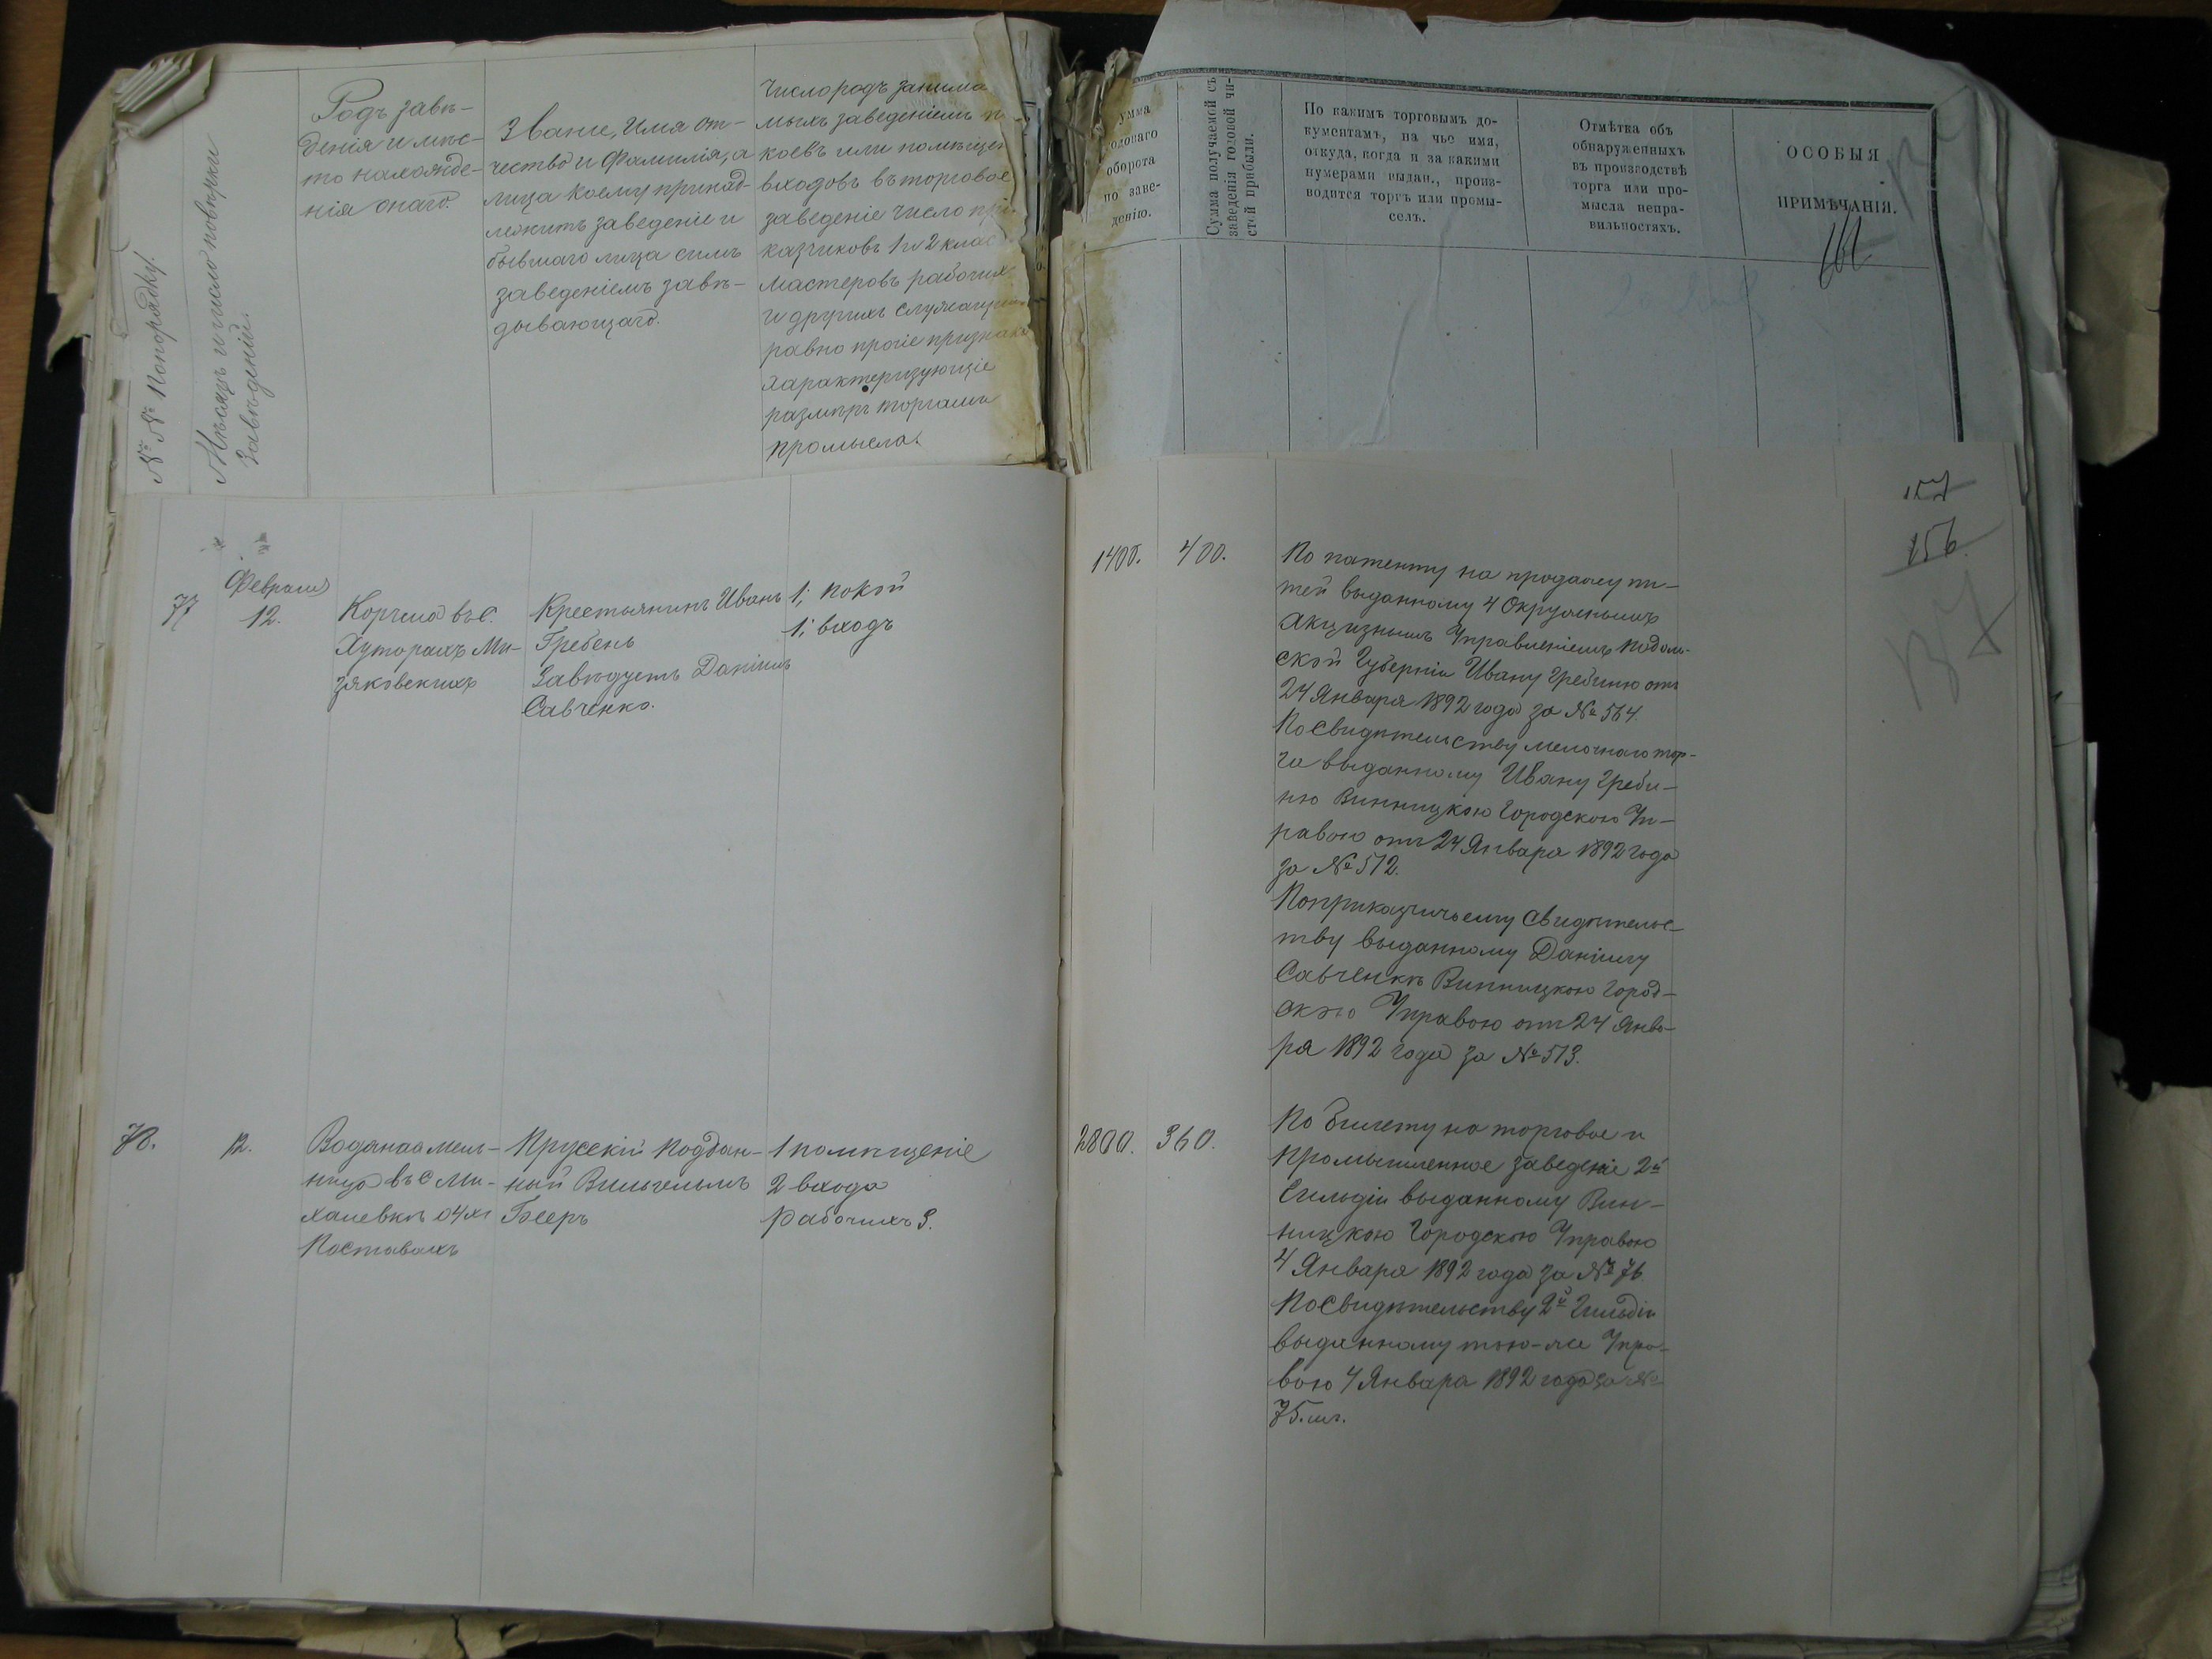 №№ Попорядку.
Мѣсяцъ и число повѣрки
Заведеній.
Родъ заве-
денія и мѣс-
то нахожде-
нія онаго.
Званіе, Имя От-
чество и Фамилія, а
лица коему принад-
лежитъ заведеніе и
бывшаго лица симъ
заведеніемъ завѣ-
дывающаго.
Число родъ занима
мыхъ заведеніемъ п
коевъ или помѣщен
входовъ въ торговое
заведеніе число при
казчиковъ 1 и 2 клас
мастеровъ рабочихъ
и другихъ служащихъ
равно прочіе признаки
характеризующіе
размѣръ торга или
промысла.
умма
годоваго
оборота
по заве-
денію.
Сумма получаемой съ
заведенія годовой чи-
стой прибыли.
По какимъ торговымъ до-
кументамъ, на чье имя,
откуда, когда и за какими
нумерами выдан., произ-
водится торгъ или промы-
селъ.
Отмѣтка объ
обнаруженныхъ
въ производствѣ
торга или про-
мысла непра-
вильностяхъ.
ОСОБЫЯ
ПРИМѢЧАНІЯ.
157
156.
77
Февраля
12.
Корчма въ с.
Хуторахъ Ми-
зяковскихъ
Крестьянинъ Иванъ
Гребень
Завѣдуетъ Даніилъ
Савченко.
1; покой
1; входъ
1400.
400.
По патенту на продажу пи-
тей выданному 4 Окружнымъ
Акцизнымъ Управленіемъ Подоль-
ской Губерніи Ивану Гребеню отъ
24 Января 1892 года за № 564.
По Свидѣтельству мелочнаго тор-
га выданному Ивану Гребе-
ню Винницкою Городскою Уп-
равою отъ 24 Января 1892 года
за № 512.
Поприказчичьему Свидѣтельс-
тву выданному Даніилу
Савченкѣ Винницкою Город-
скою Управою отъ 24 Янва-
ря 1892 года за № 513.
78.
12.
Водяная мель-
ница въ с Ми-
халевкѣ о 4хъ
Поставахъ
Прусскій Поддан-
ный Вильгельмъ
Бееръ
1 помѣщеніе
2 входа
Рабочихъ 3.
2800.
360.
По Билету на торговое и
промышленное заведеніе 2й
Гильдіи выданному Вин-
ницкою Городскою Управою
4 Января 1892 года за № 76
По Свидѣтельству 2й Гильдіи
выданному тою-же Упра-
вою 4 Января 1892 года за №
75.